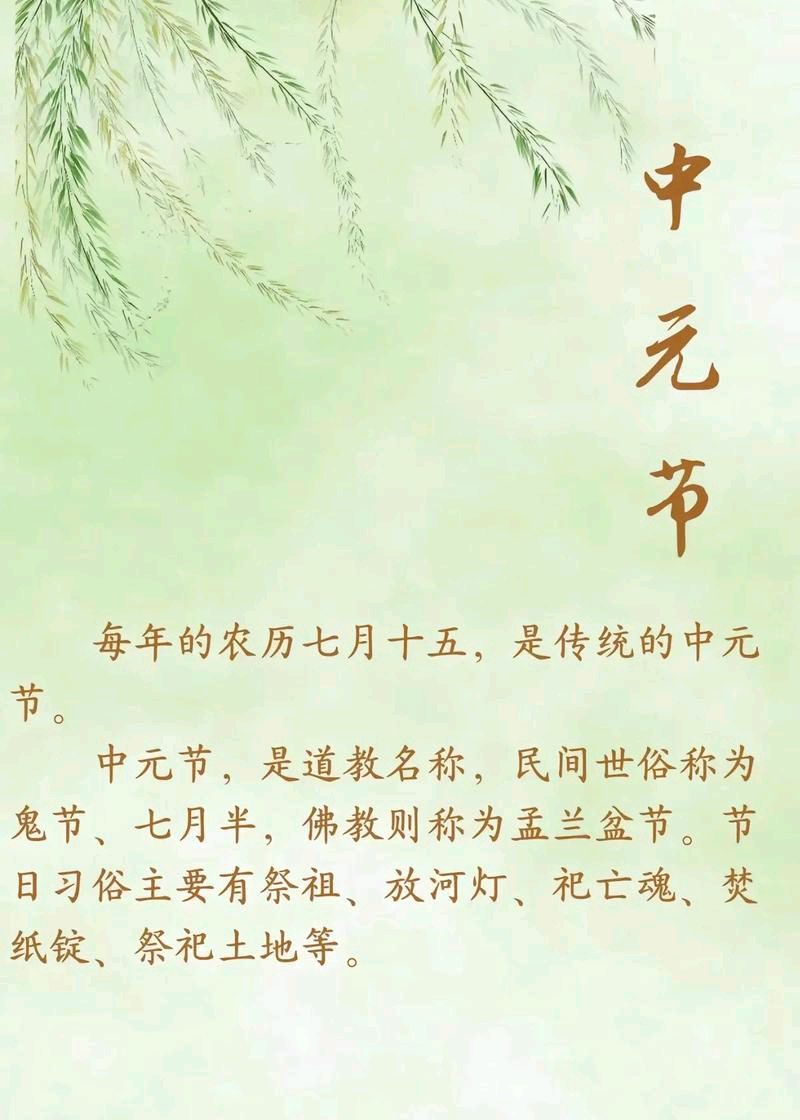 中元节
每年的农历七月十五，是传统的中元
节。
中元节，是道教名称，民间世俗称为
鬼节、七月半，佛教则称为孟兰盆节。节
日习俗主要有祭祖、放河灯、祀亡魂、焚
纸锭、祭祀土地等。